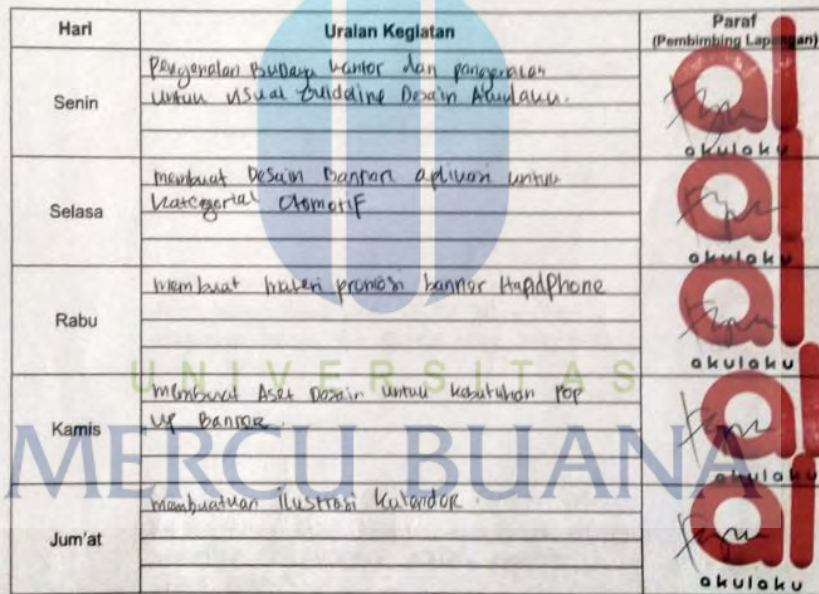 Hari Uraian Kegiatan Paraf
(Pembimbing Lapangan)
Senin
Pengenalan Budaya kantor dan pengenalan
untuk visual Guideline Desain Akulaku.
akulaku
Selasa
membuat Desain Banner aplikasi untuk
Kategorial Otomotif
akulaku
Rabu
membuat materi promosi banner Handphone
akulaku
UNIVERSITAS
Kamis
membuat Aset Desain untuk kebutuhan Pop
Up Banner.
akulaku
MERCU BUANA
Jum'at
membuatkan ilustrasi Kalender.
akulaku